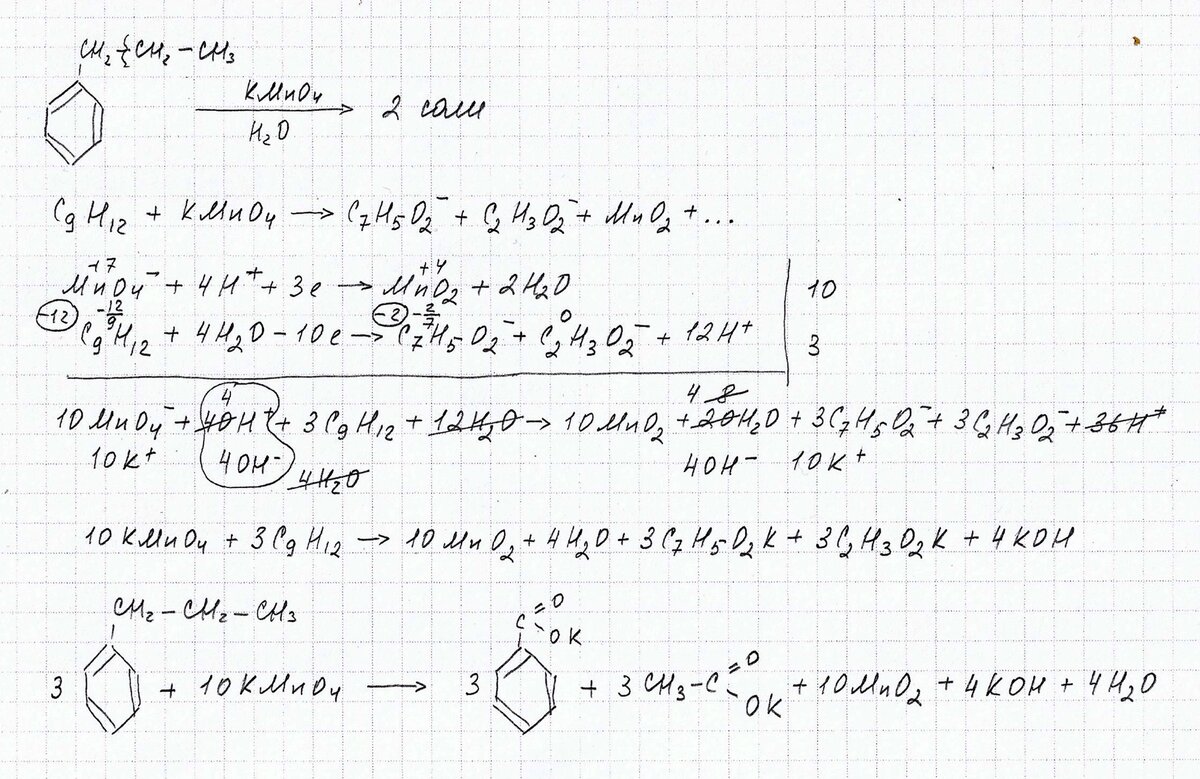 CH₂ ⌇ CH₂ – CH₃
KMnO₄
H₂O
2 соли
C₉H₁₂ + KMnO₄ → C₇H₅O₂⁻ + C₂H₃O₂⁻ + MnO₂ + ...
+7 +4
MnO₄⁻ + 4H⁺ + 3e → MnO₂ + 2H₂O | 10
-12 -12/9 -2 -2/7 0
C₉H₁₂ + 4H₂O – 10e → C₇H₅O₂⁻ + C₂H₃O₂⁻ + 12H⁺ | 3
4 4 8
10MnO₄⁻ + 40H⁺ + 3C₉H₁₂ + 12H₂O → 10MnO₂ + 20H₂O + 3C₇H₅O₂⁻ + 3C₂H₃O₂⁻ + 36H⁺
10K⁺ 4OH⁻ 4H₂O 4OH⁻ 10K⁺
10KMnO₄ + 3C₉H₁₂ → 10MnO₂ + 4H₂O + 3C₇H₅O₂K + 3C₂H₃O₂K + 4KOH
CH₂ – CH₂ – CH₃
C =O
OK
3 + 10KMnO₄ → 3 + 3CH₃–C =O OK + 10MnO₂ + 4KOH + 4H₂O